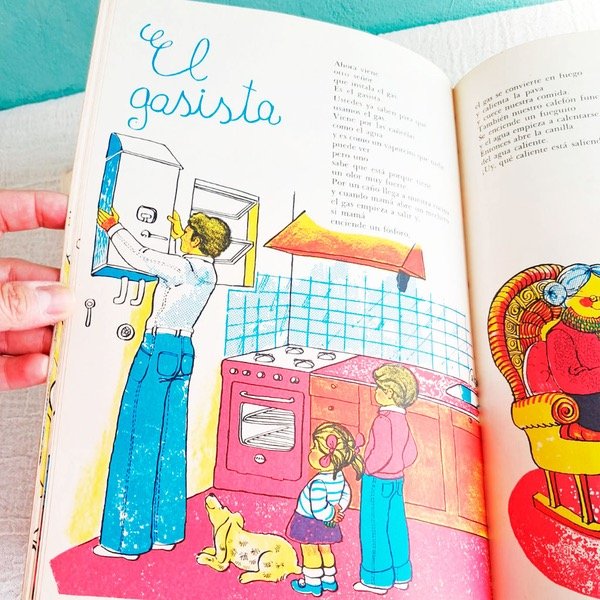 El
gasista
Ahora viene
otro señor
que instala el gas.
Es el gasista.
Ustedes ya saben para qué
usamos el gas.
Viene por las cañerías
como el agua
y es como un vaporcito que nadie
puede ver
pero uno
sabe que está porque larga
un olor muy fuerte.
Por un caño llega a nuestra cocina
y cuando mamá abre un
el gas empieza a salir y
si mamá
enciende un fósforo,
el gas se convierte en fuego
calienta la pava
y cuece nuestra comida.
También nuestro calefón funciona
Se enciende un fueguito
y el agua empieza a calentarse
Entonces abre la canilla
del agua caliente.
¡Uy, qué caliente está saliendo